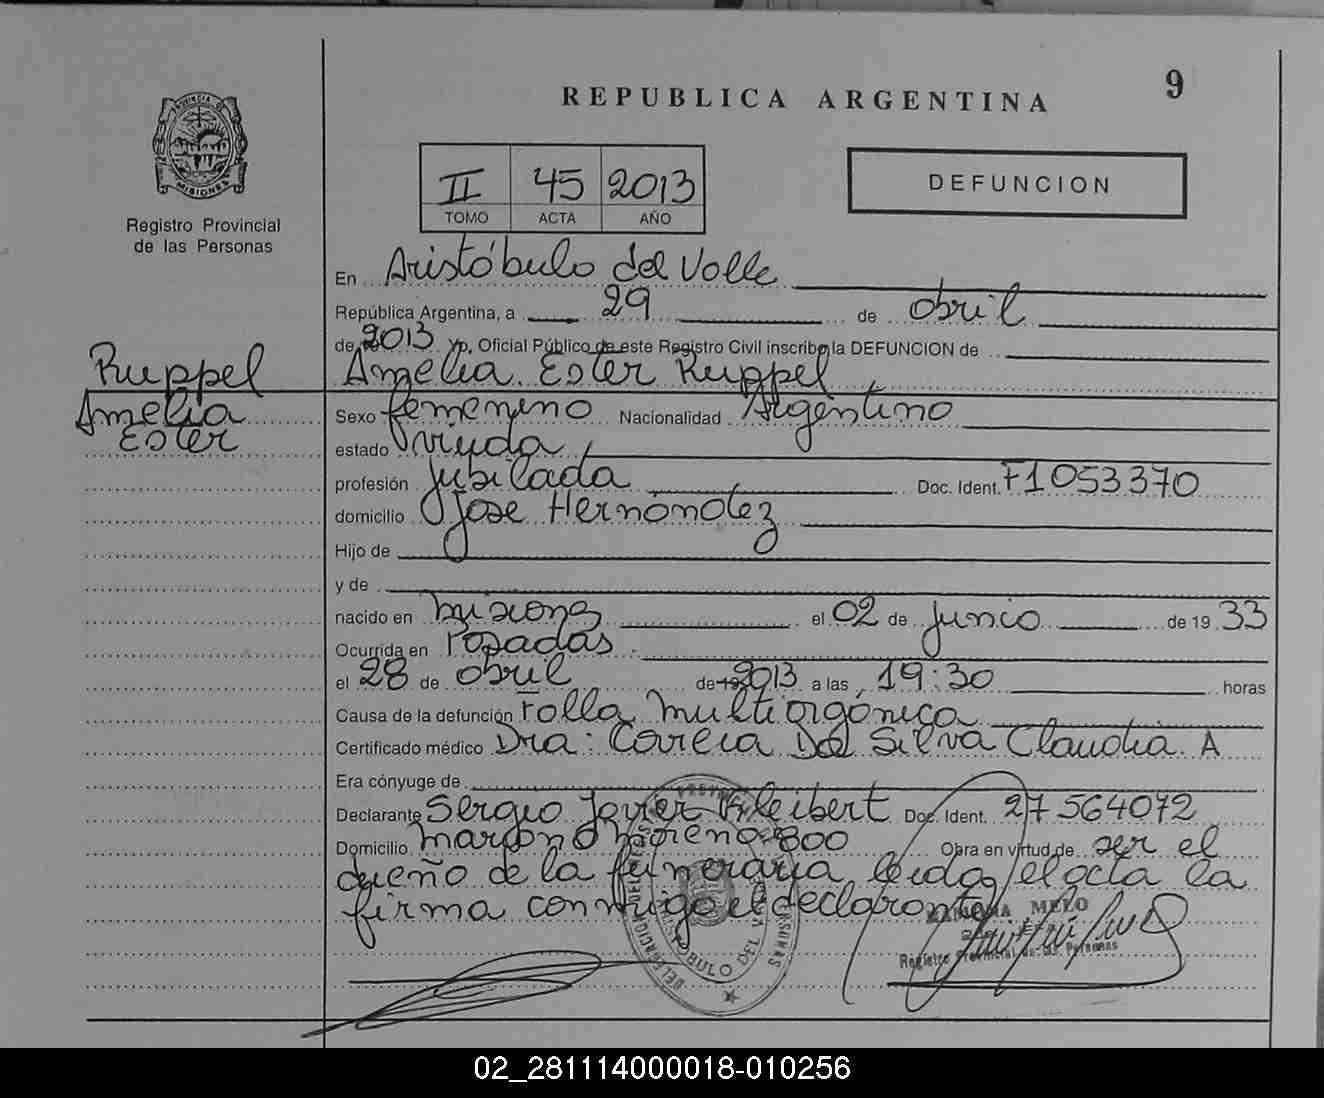 REPUBLICA ARGENTINA
9
PROVINCIA DE
MISIONES
Registro Provincial
de las Personas
II 45 2013
TOMO ACTA AÑO
DEFUNCION
En Aristóbulo del Valle
República Argentina, a 29 de abril
de 2013 Yo, Oficial Público de este Registro Civil inscribo la DEFUNCION de
Ruppel
Amelia
Ester
Amelia Ester Ruppel
Sexo femenino Nacionalidad Argentino
estado viuda
profesión jubilada Doc. Ident. F1053370
domicilio Jose Hernández
Hijo de
y de
nacido en Misiones el 02 de junio de 19 33
Ocurrida en Posadas
el 28 de abril de 19 2013 a las 19:30 horas
Causa de la defunción Falla multiorgánica
Certificado médico Dra: Correia Da Silva Claudia A
Era cónyuge de
Declarante Sergio Javier Kleibert Doc. Ident. 27564072
Domicilio Mariano Moreno 800 Obra en virtud de ser el
dueño de la funeraria, leída el acta la
firma conmigo el declarante
MELO
Registro Provincial de las Personas
ARISTOBULO DEL VALLE
02_281114000018-010256